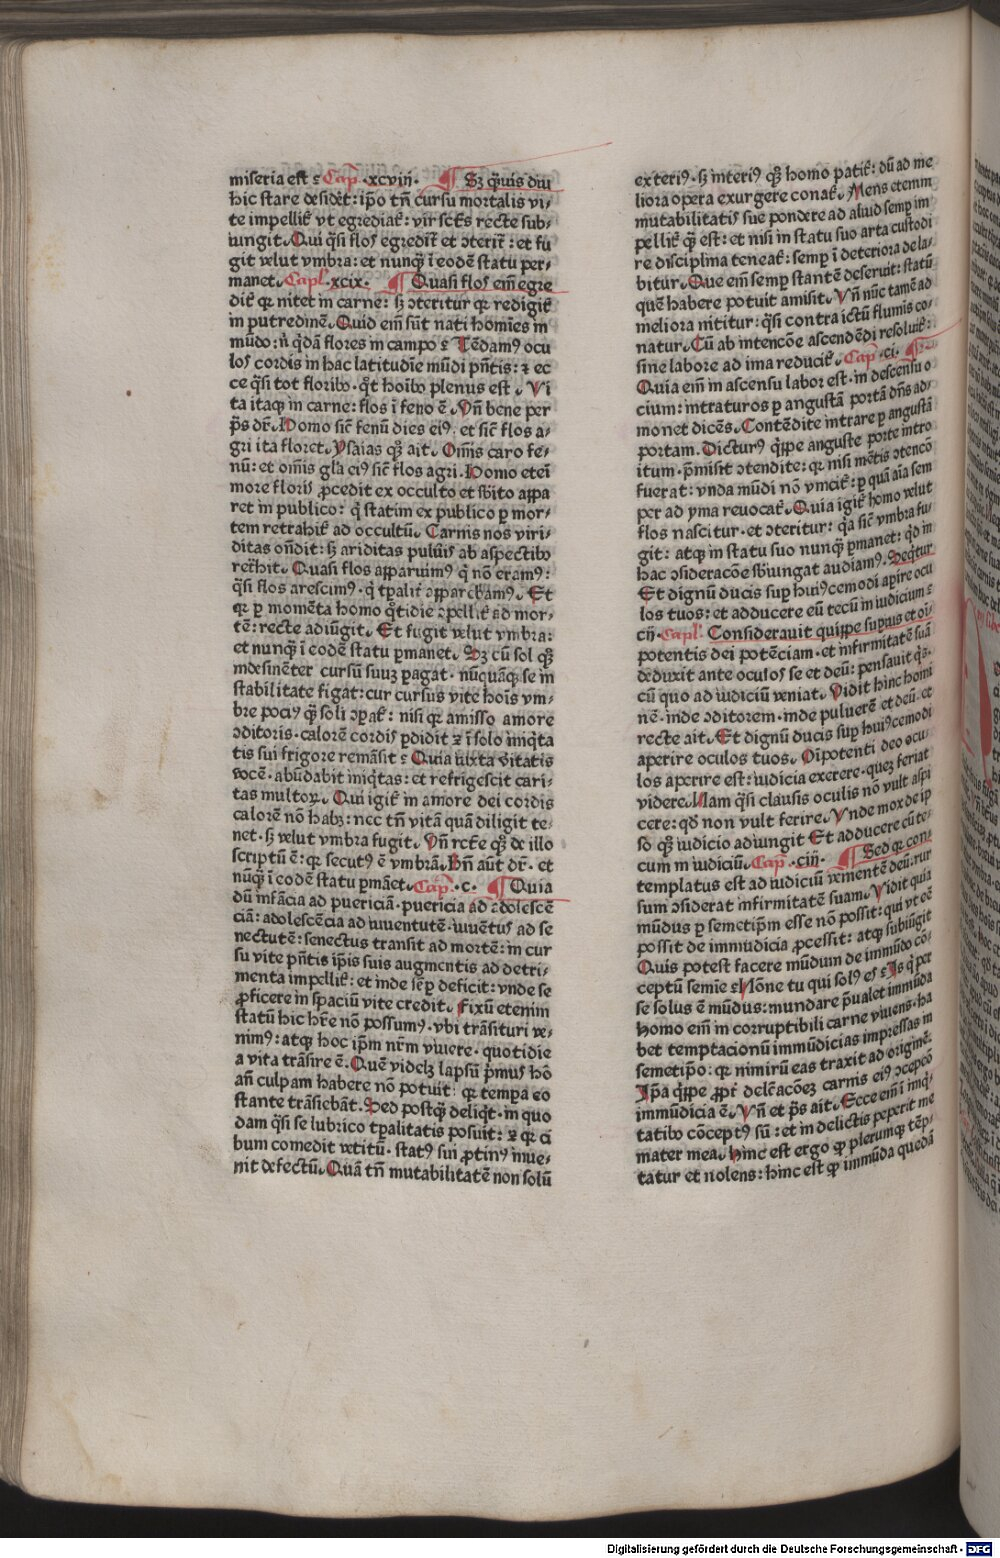 miseria est? Cap̃. ·xcviij· ¶ Sꝫ q̃uis diu
hic stare desideret: ip̃o tñ cursu mortalis vi⸗
te impellit̃ vt egrediat̃: vir sct̃s recte sub⸗
iungit. Qui q̃si flos egredit̃ et ↄterit̃: et fu
git velut vmbra: et nunq̃ ĩ eodẽ statu per⸗
manet. Capl. ·xcix· ¶ Quasi flos em̃ egre
dit̃ qr nitet in carne: sꝫ ↄteritur qr redigit̃
in putredinẽ. Quid em̃ sũt nati homĩes in
mũdo: ñ q̃dã flores in campo? Tẽdamꝰ ocu
los cordis in hac latitudĩe mũdi p̃ñtis: ⁊ ec
ce q̃si tot floribꝰ· q̃t hoĩbꝰ plenus est. Vi
ta itaqꝫ in carne: flos ĩ feno ẽ. Vñ bene per
p̃s dr̃. Homo sic̃ fenũ dies eiꝰ: et sic̃ flos a⸗
gri ita floret. Ysaias qꝫ ait. Om̃is caro fe⸗
nũ: et om̃is gl̃a eiꝰ sic̃ flos agri. Homo etei
more floris ꝓcedit ex occulto et sbito appa
ret in publico: q̃ statim ex publico ꝑ mor⸗
tem retrahit̃ ad occultũ. Carnis nos viri⸗
ditas on̄dit: sꝫ ariditas pulũis ab aspectibꝰ
ret̃hit. Quasi flos apparuimꝰ q̃ nõ eramꝰ:
q̃si flos arescimꝰ· q̃ tꝑalit̃ apparebamꝰ. Et
qr ꝑ momẽta homo q̃tidie ↄpellit̃ ad mor⸗
tẽ: recte adiũgit. Et fugit velut vmbra:
et nunq̃ ĩ eodẽ statu ꝑmanet. Sꝫ cũ sol qꝫ
indesinẽter cursũ suuꝫ ꝑagat· nũquãqꝫ se in
stabilitate figat: cur cursus vite hoĩs vm⸗
bre pociꝰ q̃ꝫ soli ↄꝑat̃: nisi qr amisso amore
ↄditoris· calorẽ cordis ꝑdidit ⁊ ĩ solo iniq̃ta
tis sui frigore remãsit? Quia iuxta ṽitatis
vocẽ· abũdabit iniq̃tas: et refrigescit cari⸗
tas multoꝝ. Qui igit̃ in amore dei cordis
calorẽ nõ habꝫ: nec tñ vitã quã diligit te⸗
net· sꝫ velut vmbra fugit. Vñ rct̃e qꝫ de illo
scriptũ ẽ: qr secutꝰ ẽ vmbrã. Bñ aũt dr̃· et
nũq̃ ĩ eodẽ statu ꝑmãet. Cap̃. ·c· ¶ Quia
dũ infãcia ad puericiã· puericia ad adolescẽ
ciã: adolescẽcia ad iuuentutẽ· iuuẽtus ad se
nectutẽ: senectus transit ad mortẽ: in cur
su vite p̃ñtis ip̃is suis augmentis ad detri⸗
menta impellit̃: et inde sẽꝑ deficit: vnde se
ꝓficere in spaciũ vite credit. Fixũ etenim
statũ hic hr̃e nõ possumꝰ· vbi trãsituri ve⸗
nimꝰ: atqꝫ hoc ip̃m nr̃m viuere· quotidie
a vita trãsire ẽ. Quẽ videlꝫ lapsũ p̃mus hõ
añ culpam habere nõ potuit: qr tempa eo
stante trãsiebãt. Sed postq̃ deliq̃t· in quo
dam q̃si se lubrico tꝑalitatis posuit: ⁊ qr ci
bum comedit vetitũ· statꝰ sui ꝓtinꝰ inue⸗
nit defectũ. Quã tñ mutabilitatẽ non solũ
exteriꝰ· sꝫ interiꝰ qꝫ homo patit̃: dũ ad me
liora opera exurgere conat̃. Mens etenim
mutabilitatis sue pondere ad aliud semꝑ im
pellit̃ q̃ est: et nisi in statu suo arta custodi
re disciplina teneat̃: semꝑ ĩ deteriora dela⸗
bitur. Que em̃ semꝑ stantẽ deseruit: statũ
quẽ habere potuit amisit. Vñ nũc tamẽ ad
meliora nititur: q̃si contra ictũ flumis co⸗
natur. Cũ ab intencõe ascendẽdi resoluit̃:
sine labore ad ima reducit̃. Cap̃. ·ci· ¶
Quia em̃ in ascensu labor est· in descensu o
cium: intraturos ꝑ angustã portã dñs ad⸗
monet dicẽs. Contẽdite intrare ꝑ angustã
portam. Dicturꝰ q̃ppe anguste porte intro
itum· p̃misit ↄtendite: qr nisi mẽtis ↄtencõ
fuerat: vnda mũdi nõ vincit̃: ꝑ quã aĩa sem
per ad yma reuocat̃. Quia igit̃ homo velut
flos nascitur· et ↄteritur: q̃a sic̃ vmbra fu⸗
git: atqꝫ in statu suo nunq̃ ꝑmanet: qd̃ in
hac ↄsideracõe sbiungat audiamꝰ. Seq̃tur
Et dignũ ducis suꝑ huiꝰcemodi aꝑire ocu
los tuos: et adducere eũ tecũ in iudicium?
cij· Capl. Considerauit quippe supius et oĩ⸗
potentis dei potẽciam· et infirmitatẽ suã
deduxit ante oculos se et deũ: pensauit q̃s·
cũ quo ad iudiciũ veniat. Vidit hinc homi
nẽ· inde ↄditorem· inde puluerẽ et deũ· et
recte ait. Et dignũ ducis suꝑ huiꝰcemodi
aperire oculos tuos. Oĩpotenti deo ocu⸗
los aperire est: iudicia exerere· queꝫ feriat
videre. Nam q̃si clausis oculis nõ vult aspi
cere: qd̃ non vult ferire. Vnde mox de ip
so qꝫ iudicio adiungit Et adducere cũ te⸗
cum in iudiciũ. Cap̃. ·ciij· ¶ Sed qr con⸗
templatus est ad iudiciũ vementẽ deũ: rur
sum ↄsiderat infirmitatẽ suam. Vidit quia
mũdus ꝑ semetip̃m esse nõ possit: qui vt eẽ
possit de immũdicia ꝓcessit: atqꝫ subiũgit
Quis potest facere mũdum de immũdo cõ⸗
ceptũ semie? Nõne tu qui solꝰ es? Is q̃ per
se solus ẽ mũdus: mundare p̃ualet immũda
homo em̃ in corruptibili carne viuens· ha
bet temptacionũ immũdicias imp̃ssas in
semetip̃o: qr nimirũ eas traxit ad origine·
Ip̃a q̃ppe ꝓpt̃ delc̃acõeꝫ carnis eiꝰ ↄcepcõ
immũdicia ẽ. Vñ et p̃s ait. Ecce em̃ ĩ iniq̃⸗
tatibꝰ cõceptꝰ sũ: et in delictis peperit me
mater mea. Hinc est ergo ꝙ plerumqꝫ tẽp⸗
tatur et nolens: hinc est ꝙ immũda quedã
Digitalisierung gefördert durch die Deutsche Forschungsgemeinschaft - DFG